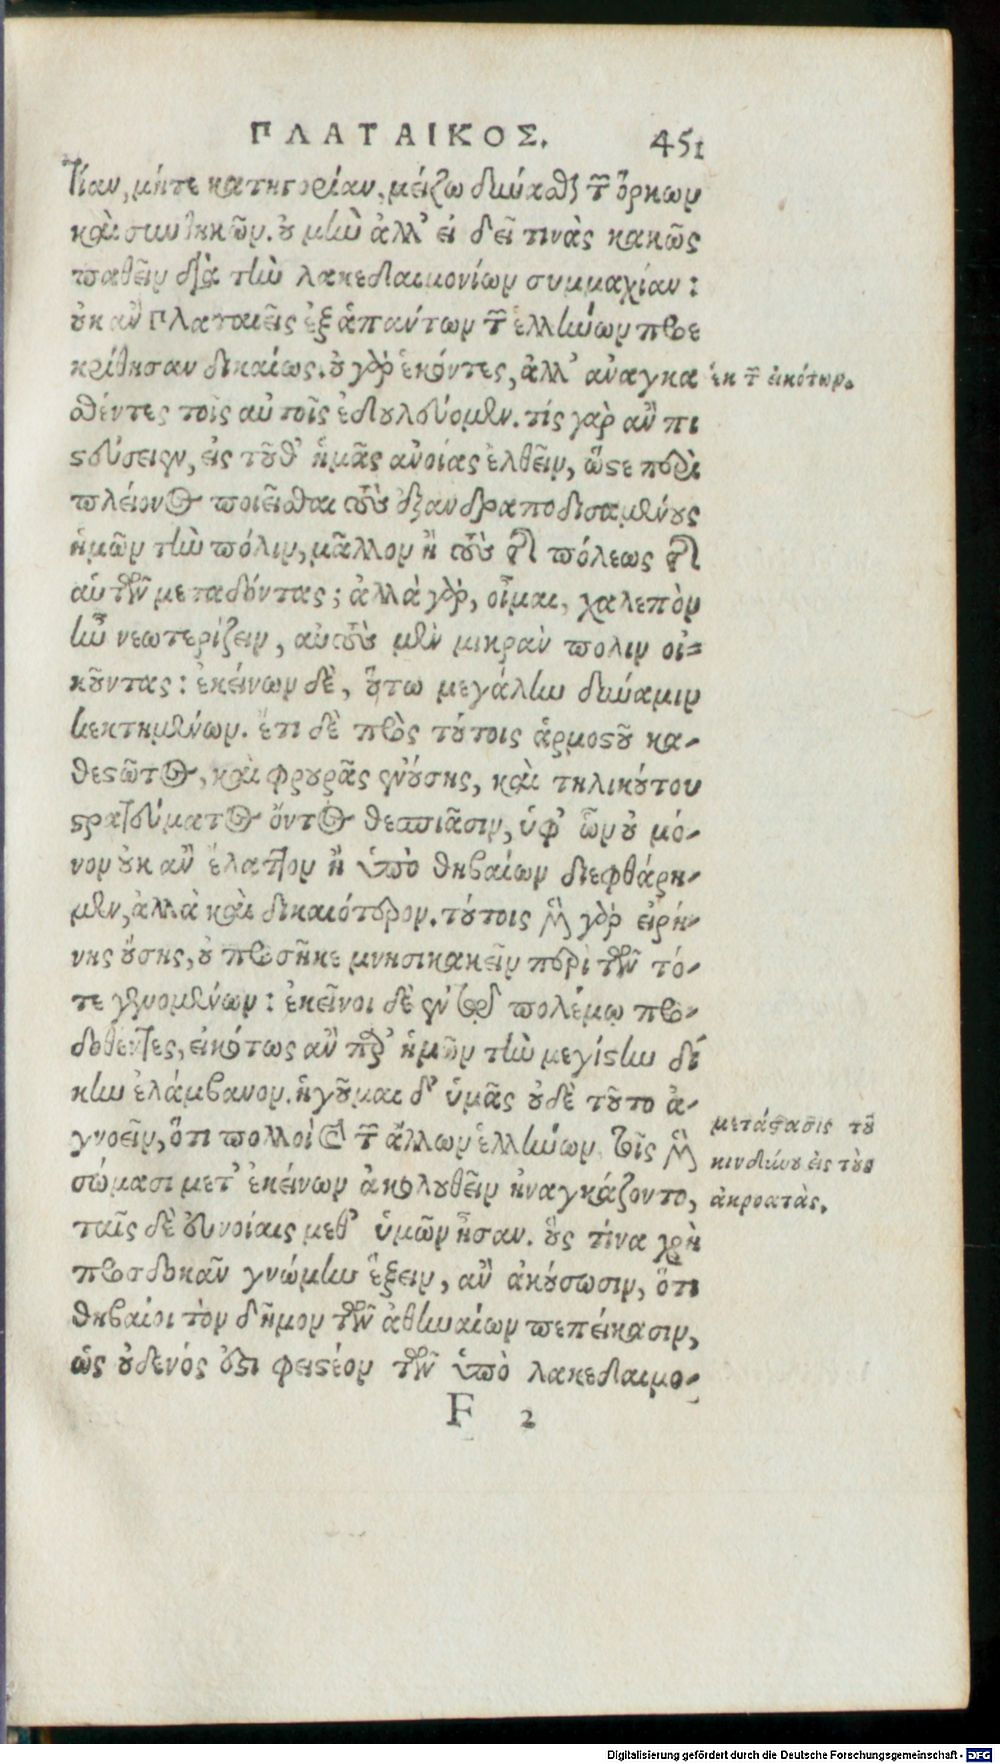 ΠΛΑΤΑΙΚΟΣ. 451
τίαν, μήτε κατηγορίαν, μείζω δύναϑαι τῶν ὅρκων
καὶ συνθηκῶν. οὐ μὴν ἀλλ' εἰ δεῖ τινὰς κακῶς
παθεῖν διὰ τὴν λακεδαιμονίων συμμαχίαν:
οὐκ ἂν Πλαταιεῖς ἐξ ἁπάντων τῶν ἑλλήνων προε
κρίθησαν δικαίως. οὐ γὰρ ἑκόντες, ἀλλ' ἀναγκα
ἐκ τῶν εἰκότων.
σθέντες τοῖς αὐτοῖς ἐδουλεύομεν. τίς γὰρ ἂν πι
στεύσειεν, εἰς τοῦθ' ἡμᾶς ἀνοίας ἐλθεῖν, ὥστε περὶ
πλείονος ποιεῖσθαι τοὺς ἐξανδραποδισαμένους
ἡμῶν τὴν πόλιν, μᾶλλον ἢ τοὺς τῆς πόλεως τῆς
αὑτῶν μεταδόντας; ἀλλὰ γὰρ, οἶμαι, χαλεπὸν
ἦν νεωτερίζειν, αὐτοὺς μὲν μικρὰν πόλιν οἰ=
κοῦντας: ἐκείνων δὲ, οὕτω μεγάλην δύναμιν
κεκτημένων. ἔτι δὲ πρὸς τούτοις ἁρμοστοῦ κα-
θεστῶτος, καὶ φρουρᾶς ἐνούσης, καὶ τηλικούτου
στρατεύματος ὄντος θεσπιᾶσιν, ὑφ' ὧν οὐ μό-
νον οὐκ ἂν ἔλαττον ἢ ὑπὸ θηβαίων διεφθάρη-
μεν, ἀλλὰ καὶ δικαιότερον. τούτοις μὲν γὰρ εἰρή-
νης οὔσης, οὐ προσῆκε μνησικακεῖν περὶ τῶν τό-
τε γενομένων: ἐκεῖνοι δὲ ἐν τῷ πολέμῳ προ-
δοθέντες, εἰκότως ἂν παρ' ἡμῶν τὴν μεγίστην δί
κην ἐλάμβανον. ἡγοῦμαι δ' ὑμᾶς οὐδὲ τοῦτο ἀ-
γνοεῖν, ὅτι πολλοὶ καὶ τῶν ἄλλων ἑλλήνων τοῖς μὲν
σώμασι μετ' ἐκείνων ἀκολουθεῖν ἠναγκάζοντο,
μετάστασις τοῦ
κινδύνου εἰς τοὺς
ἀκροατὰς.
ταῖς δὲ εὐνοίαις μεθ' ὑμῶν ἦσαν. οὓς τίνα χρὴ
προσδοκᾶν γνώμην ἕξειν, ἂν ἀκούσωσιν, ὅτι
θηβαῖοι τὸν δῆμον τῶν ἀθηναίων πεπείκασιν,
ὡς οὐδενός ἐστι φειστέον τῶν ὑπὸ λακεδαιμο-
F 2
Digitalisierung gefördert durch die Deutsche Forschungsgemeinschaft - DFG